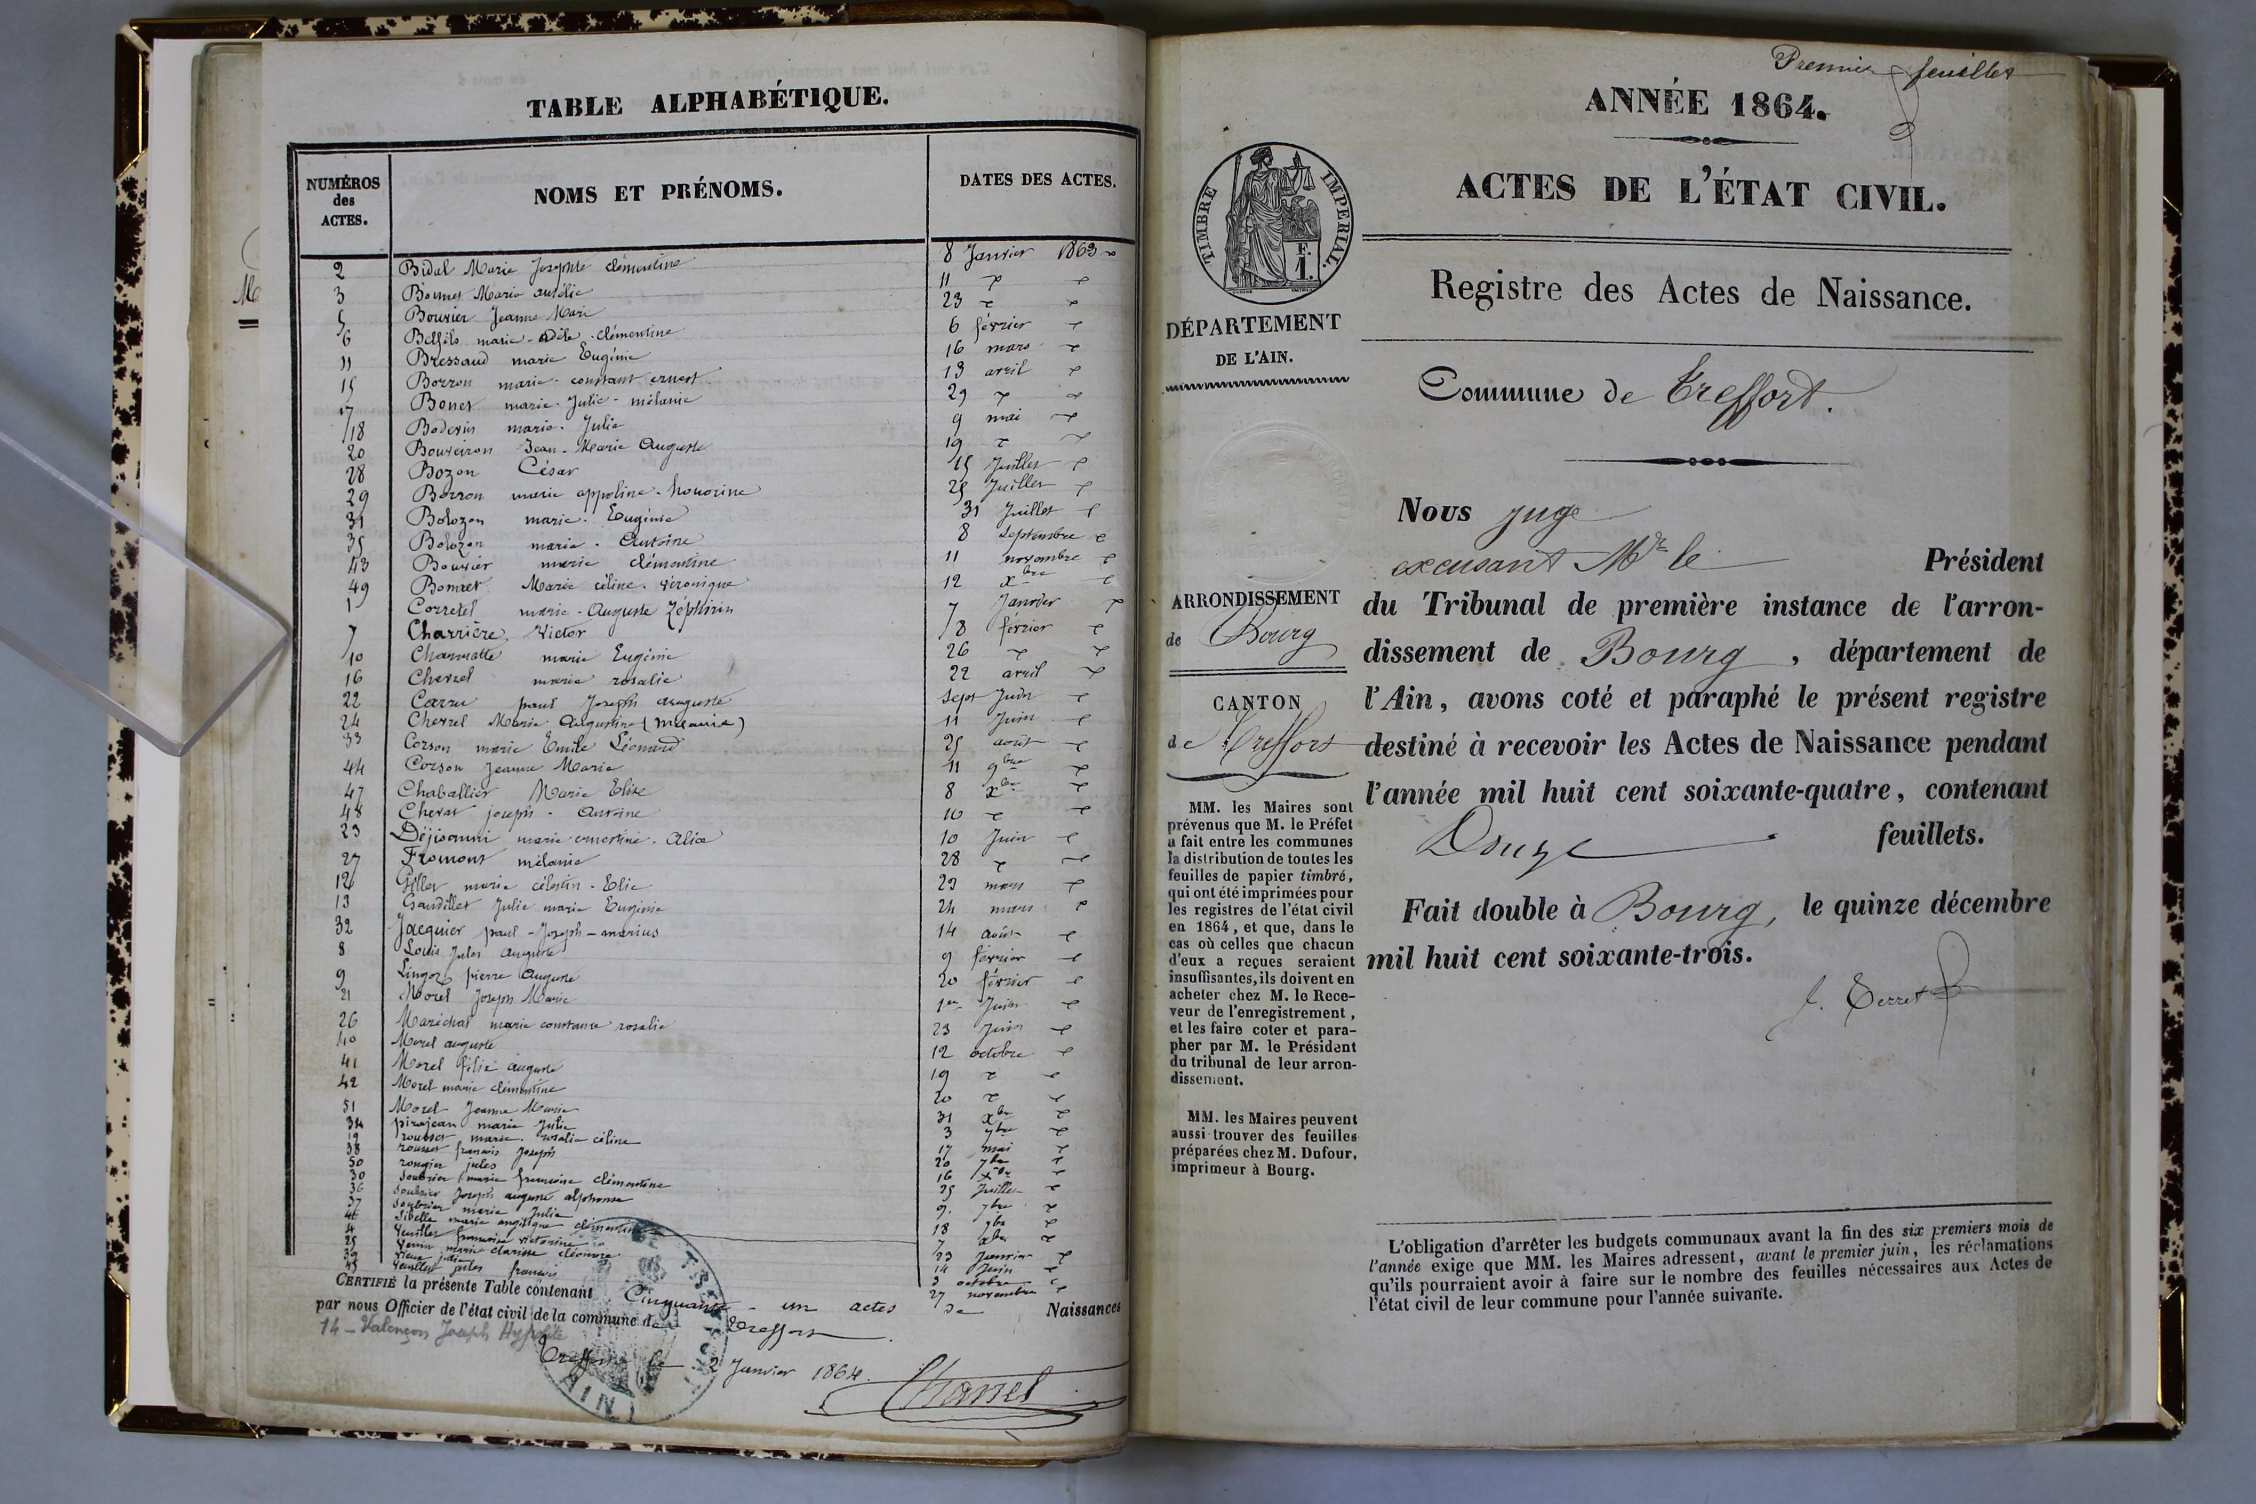 TABLE ALPHABÉTIQUE.
NUMÉROS des ACTES. NOMS ET PRÉNOMS. DATES DES ACTES.
2 Bidal Marie Josephte clémentine 8 Janvier 1863
3 Marie aurélie 11
5 Bouvier Jeanne Marie 23
6 Belfils marie - Adèle - clémentine 6 février
11 Bressaud marie Eugénie 16 mars
15 Borron marie - constant ernest 13 avril
17 Bonet marie - Julie - mélanie 29
18 Bodevin marie - Julie 9 mai
20 Bouveiron Jean - Marie Auguste 19
28 Bozon César 15 Juillet
29 Borron marie appoline - honorine 25 Juillet
31 Bolozon marie - Eugénie 31 Juillet
35 Bolozon marie - Antoine 8 septembre
43 Bouvier marie clémentine 11 novembre
49 Marie céline - véronique 12 xbre
1 Corretel marie - Auguste Zéphirin 7 Janvier
7 Charrière Victor 8 février
10 Charmatte marie Eugénie 26
16 Chevrel marie rosalie 22 avril
22 Carru paul Joseph auguste sept Juin
24 Chevrel Marie Augustine (mélanie) 11 Juin
33 Corson marie Emile Léonard 25 août
44 Corson Jeanne Marie 11 9bre
47 Chaballier Marie Elise 8 xbre
48 joseph - antoine 10
23 marie ernestine - Alice 10 Juin
27 Fromont mélanie 28
12 Gillet marie célestin - Elie 23 mars
13 Gaudillet Julie marie Eugénie 24 mars
32 Jacquier paul - Joseph - marius 14 août
8 Louis Jules auguste 9 février
9 Lingot pierre Auguste 20 février
21 Morel Joseph Marie 1er Juin
26 Maréchal marie constance rosalie 23 Juin
40 Morel auguste 12 octobre
41 Morel félix auguste 19
42 Morel marie clémentine 20
51 Morel Jeanne Marie 31 xbre
34 pirajean marie Julie 3 7bre
19 rousset marie rosalie céline 17 mai
38 rousset francois Joseph 20 7bre
50 rougier jules 16 xbre
30 Soubrier marie francoise clémentine 25 Juillet
36 Soubrier Joseph auguste alphonse 9 7bre
37 Soubrier marie Julie 18 7bre
46 Sibelle marie angélique clémentine 7 xbre
4 Veuillet francoise victorine 23 Janvier
25 marie clarisse éléonore 14 Juin
39 Vieux julie 3 octobre
45 Veuillet jules francois 27 novembre
CERTIFIÉ la présente Table contenant Cinquante - un actes de Naissances
par nous Officier de l'état civil de la commune de Treffort
14 - Valençon Joseph Hypolite
Treffort le 2 Janvier 1864.
Chanel
TREFFORT
AIN
Premier feuillet
ANNÉE 1864.
ACTES DE L'ÉTAT CIVIL.
Registre des Actes de Naissance.
TIMBRE IMPÉRIAL.
F.
1.
DÉPARTEMENT
DE L'AIN.
ARRONDISSEMENT
de Bourg
CANTON
de Treffort
MM. les Maires sont
prévenus que M. le Préfet
a fait entre les communes
la distribution de toutes les
feuilles de papier timbré,
qui ont été imprimées pour
les registres de l'état civil
en 1864, et que, dans le
cas où celles que chacun
d'eux a reçues seraient
insuffisantes, ils doivent en
acheter chez M. le Rece-
veur de l'enregistrement,
et les faire coter et para-
pher par M. le Président
du tribunal de leur arron-
dissement.
MM. les Maires peuvent
aussi trouver des feuilles
préparées chez M. Dufour,
imprimeur à Bourg.
Commune de Treffort.
Nous juge
excusant Mr le Président
du Tribunal de première instance de l'arron-
dissement de Bourg, département de
l'Ain, avons coté et paraphé le présent registre
destiné à recevoir les Actes de Naissance pendant
l'année mil huit cent soixante-quatre, contenant
Douze feuillets.
Fait double à Bourg, le quinze décembre
mil huit cent soixante-trois.
Terret
L'obligation d'arrêter les budgets communaux avant la fin des six premiers mois de
l'année exige que MM. les Maires adressent, avant le premier juin, les réclamations
qu'ils pourraient avoir à faire sur le nombre des feuilles nécessaires aux Actes de
l'état civil de leur commune pour l'année suivante.